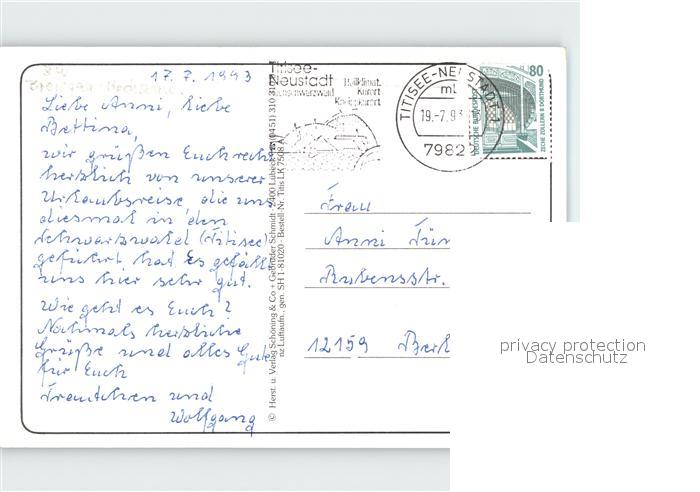 17.7.1993
Liebe Anni, liebe
Bettina,
wir grüßen Euch recht
herzlich von unserer
Urlaubsreise die uns
diesmal in den
Schwarzwald (Titisee)
geführt hat. Es gefällt
uns hier sehr gut.
Wie geht es Euch?
Nochmals herzliche
Grüße und alles Gute
für Euch
Frautchen und
Wolfgang
© Herst. u. Verlag Schöning & Co + Gebrüder Schmidt
Bestell-Nr. Titis LK 7508 A
Titisee-
Neustadt
Hochschwarzwald
Heilklimat.
Kurort
Kneippkurort
TITISEE-NEUSTADT 1
ml
19.-7.93
79822
80
DEUTSCHE BUNDESPOST
ZECHE ZOLLERN II DORTMUND
Frau
Anni
Rubensstr.
12159 Berl
privacy protection
Datenschutz